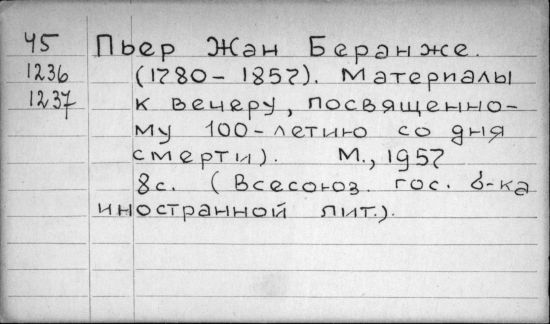 45 Пьер Жан Беранже.
1236 (1780-1857). Материалы
1237 к вечеру, посвященно-
му 100-летию со дня
смерти). М., 1957
8с. (Всесоюз. гос. б-ка
иностранной лит.).